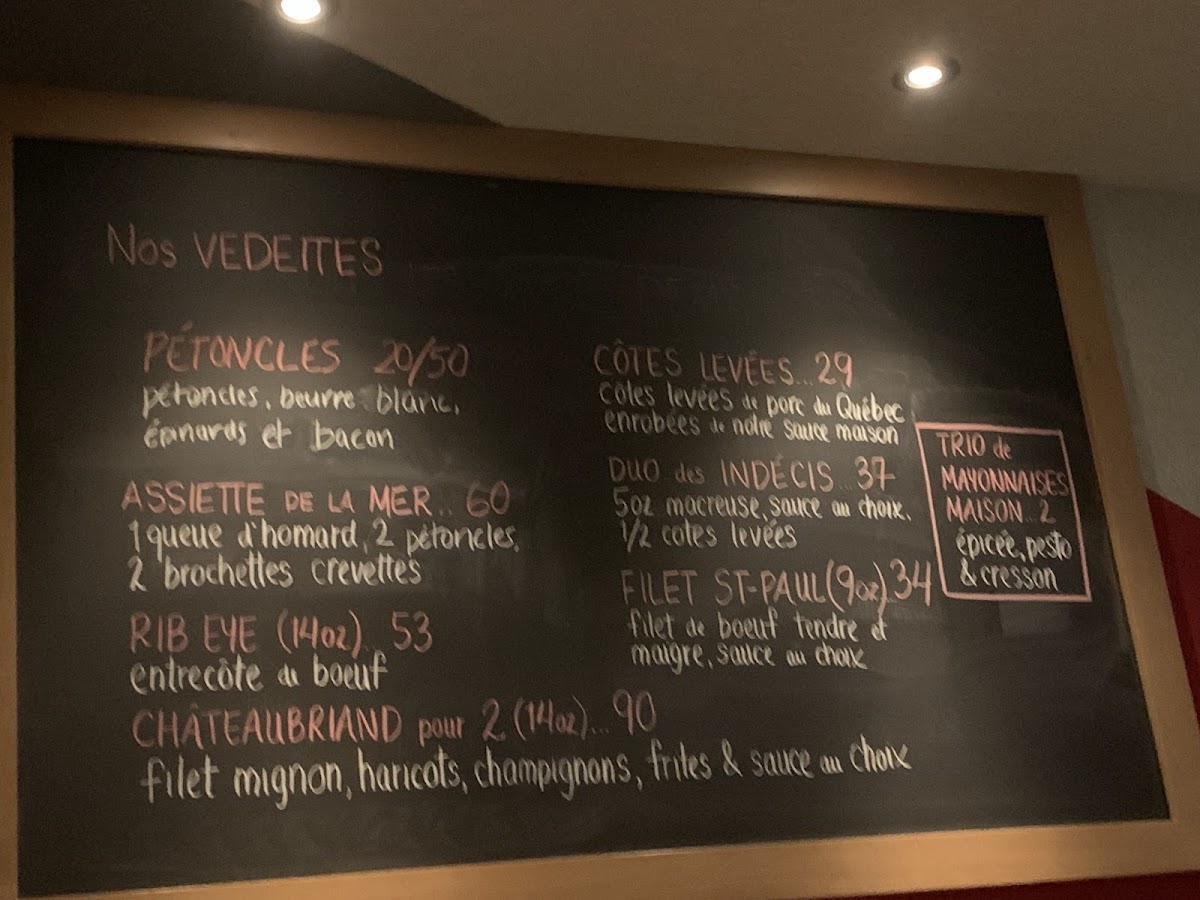 Nos VEDETTES
PÉTONCLES 20/50
pétoncles, beurre blanc,
épinards et bacon
ASSIETTE DE LA MER.. 60
1 queue d'homard, 2 pétoncles,
2 brochettes crevettes
RIB EYE (14oz)... 53
entrecôte de boeuf
CHÂTEAUBRIAND pour 2 (14oz)... 90
filet mignon, haricots, champignons, frites & sauce au choix
CÔTES LEVÉES... 29
côtes levées de porc du Québec
enrobées de notre sauce maison
DUO des INDÉCIS... 37
5oz macreuse, sauce au choix,
1/2 cotes levées
FILET ST-PAUL (9oz). 34
filet de boeuf tendre et
maigre, sauce au choix
TRIO de
MAYONNAISES
MAISON... 2
épicée, pesto
& cresson